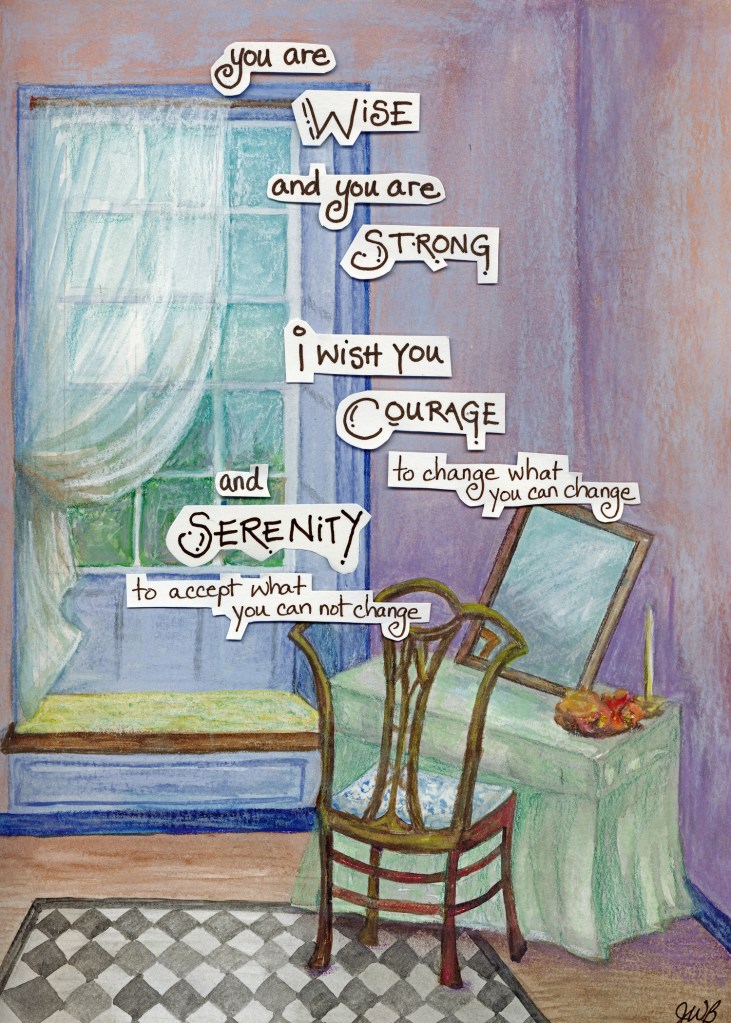 you are
WiSE
and you are
STRONG
i WiSH YOU
COURAGE
to change what
you can change
and
SERENiTY
to accept what
you can not change
JWB